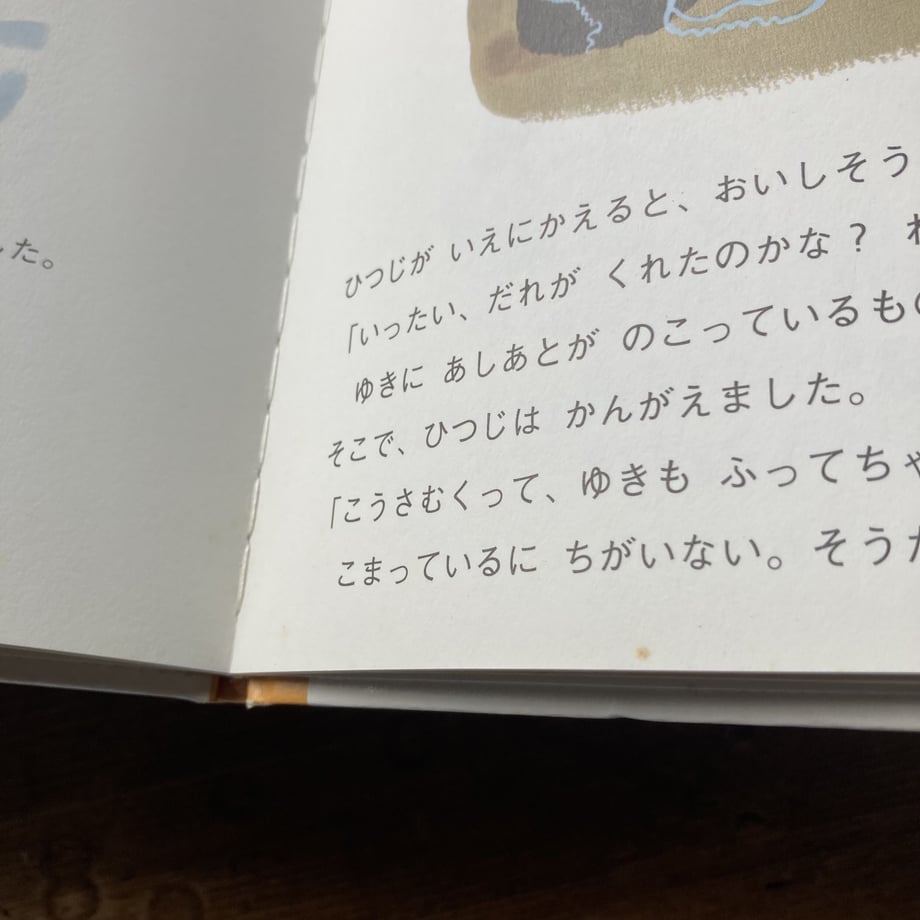 した。
ひつじが いえにかえると、おいしそう
「いったい、だれが くれたのかな？
ゆきに あしあとが のこっているもの
そこで、ひつじは かんがえました。
「こうさむくって、ゆきも ふってちゃ
こまっているに ちがいない。そうだ